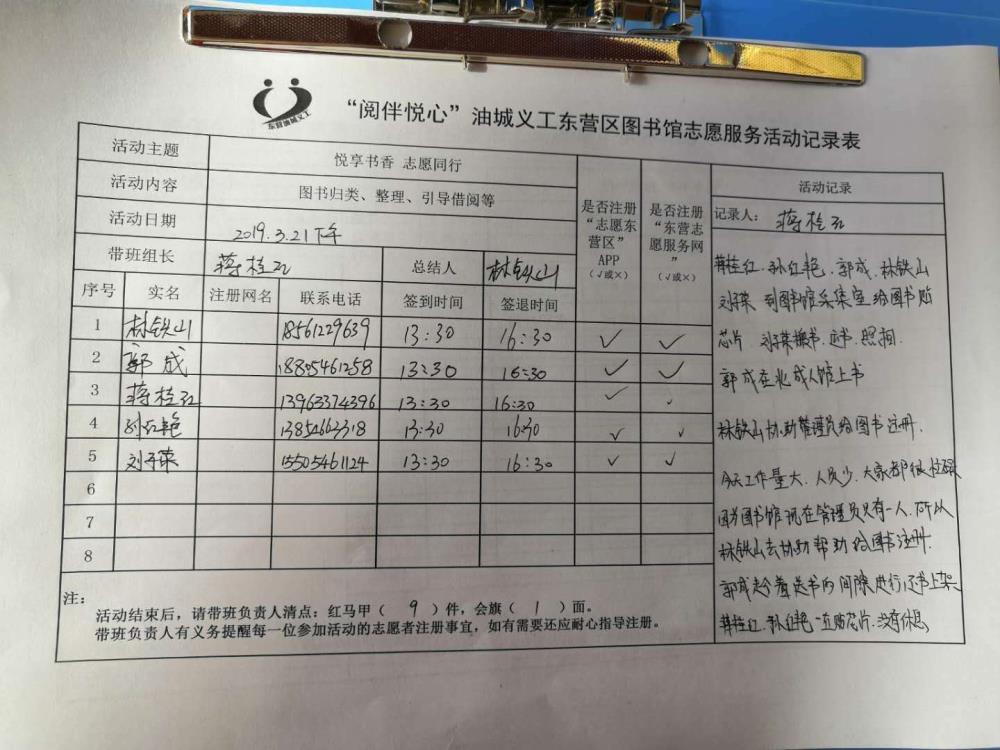 东营油城义工
“阅伴悦心”油城义工东营区图书馆志愿服务活动记录表
活动主题 悦享书香 志愿同行
活动内容 图书归类、整理、引导借阅等
活动日期 2019.3.21下午
带班组长 蒋桂红 总结人 林铁山
是否注册“志愿东营区”APP（√或×）
是否注册“东营志愿服务网”（√或×）
序号 实名 注册网名 联系电话 签到时间 签退时间
1 林铁山 18561229639 13:30 16:30 √ √
2 郭成 18805461258 13:30 16:30 √ √
3 蒋桂红 13963374396 13:30 16:30 √ √
4 孙红艳 13854663318 13:30 16:30 √ √
5 刘子荣 15505461124 13:30 16:30 √ √
6
7
8
注：
活动结束后，请带班负责人清点：红马甲（ 9 ）件，会旗（ 1 ）面。
带班负责人有义务提醒每一位参加活动的志愿者注册事宜，如有需要还应耐心指导注册。
活动记录
记录人：蒋桂红
蒋桂红、孙红艳、郭成、林铁山
刘子荣 到图书馆采集室给图书贴
芯片 刘子荣搬书、送书、照相.
郭成在北成人馆上书
林铁山协助管理员给图书注册.
今天工作量大、人员少、大家都很
图书馆现在管理员只有一人、所以
林铁山去协助帮助给图书注册.
郭成趁着送书的间隙进行还书上架
蒋桂红、孙红艳一直贴芯片、没有休息